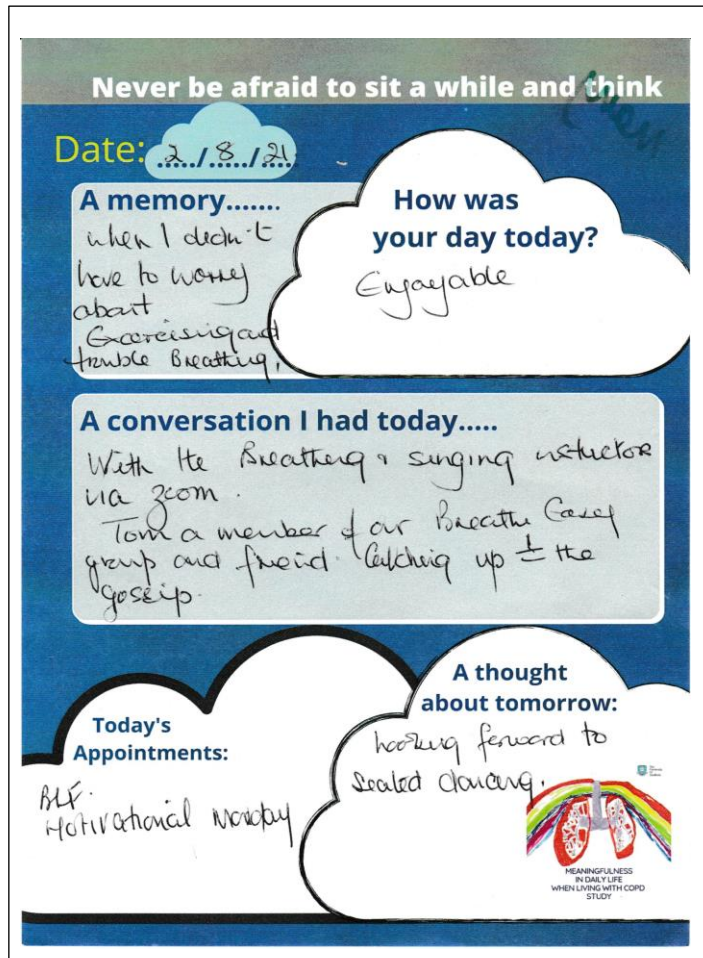 Never be afraid to sit a while and think
Date: 2/8/21
A memory.......
when I didn't
have to worry
about
Exercising and
trouble Breathing.
How was
your day today?
Enjoyable
A conversation I had today.....
With the Breathing & singing instructor
via zoom.
Tom a member of our Breathe Easy
group and friend. Catching up the
gosip.
Today's
Appointments:
BLF.
Motivational Monday
A thought
about tomorrow:
Looking forward to
seated dancing.
MEANINGFULNESS
IN DAILY LIFE
WHEN LIVING WITH COPD
STUDY